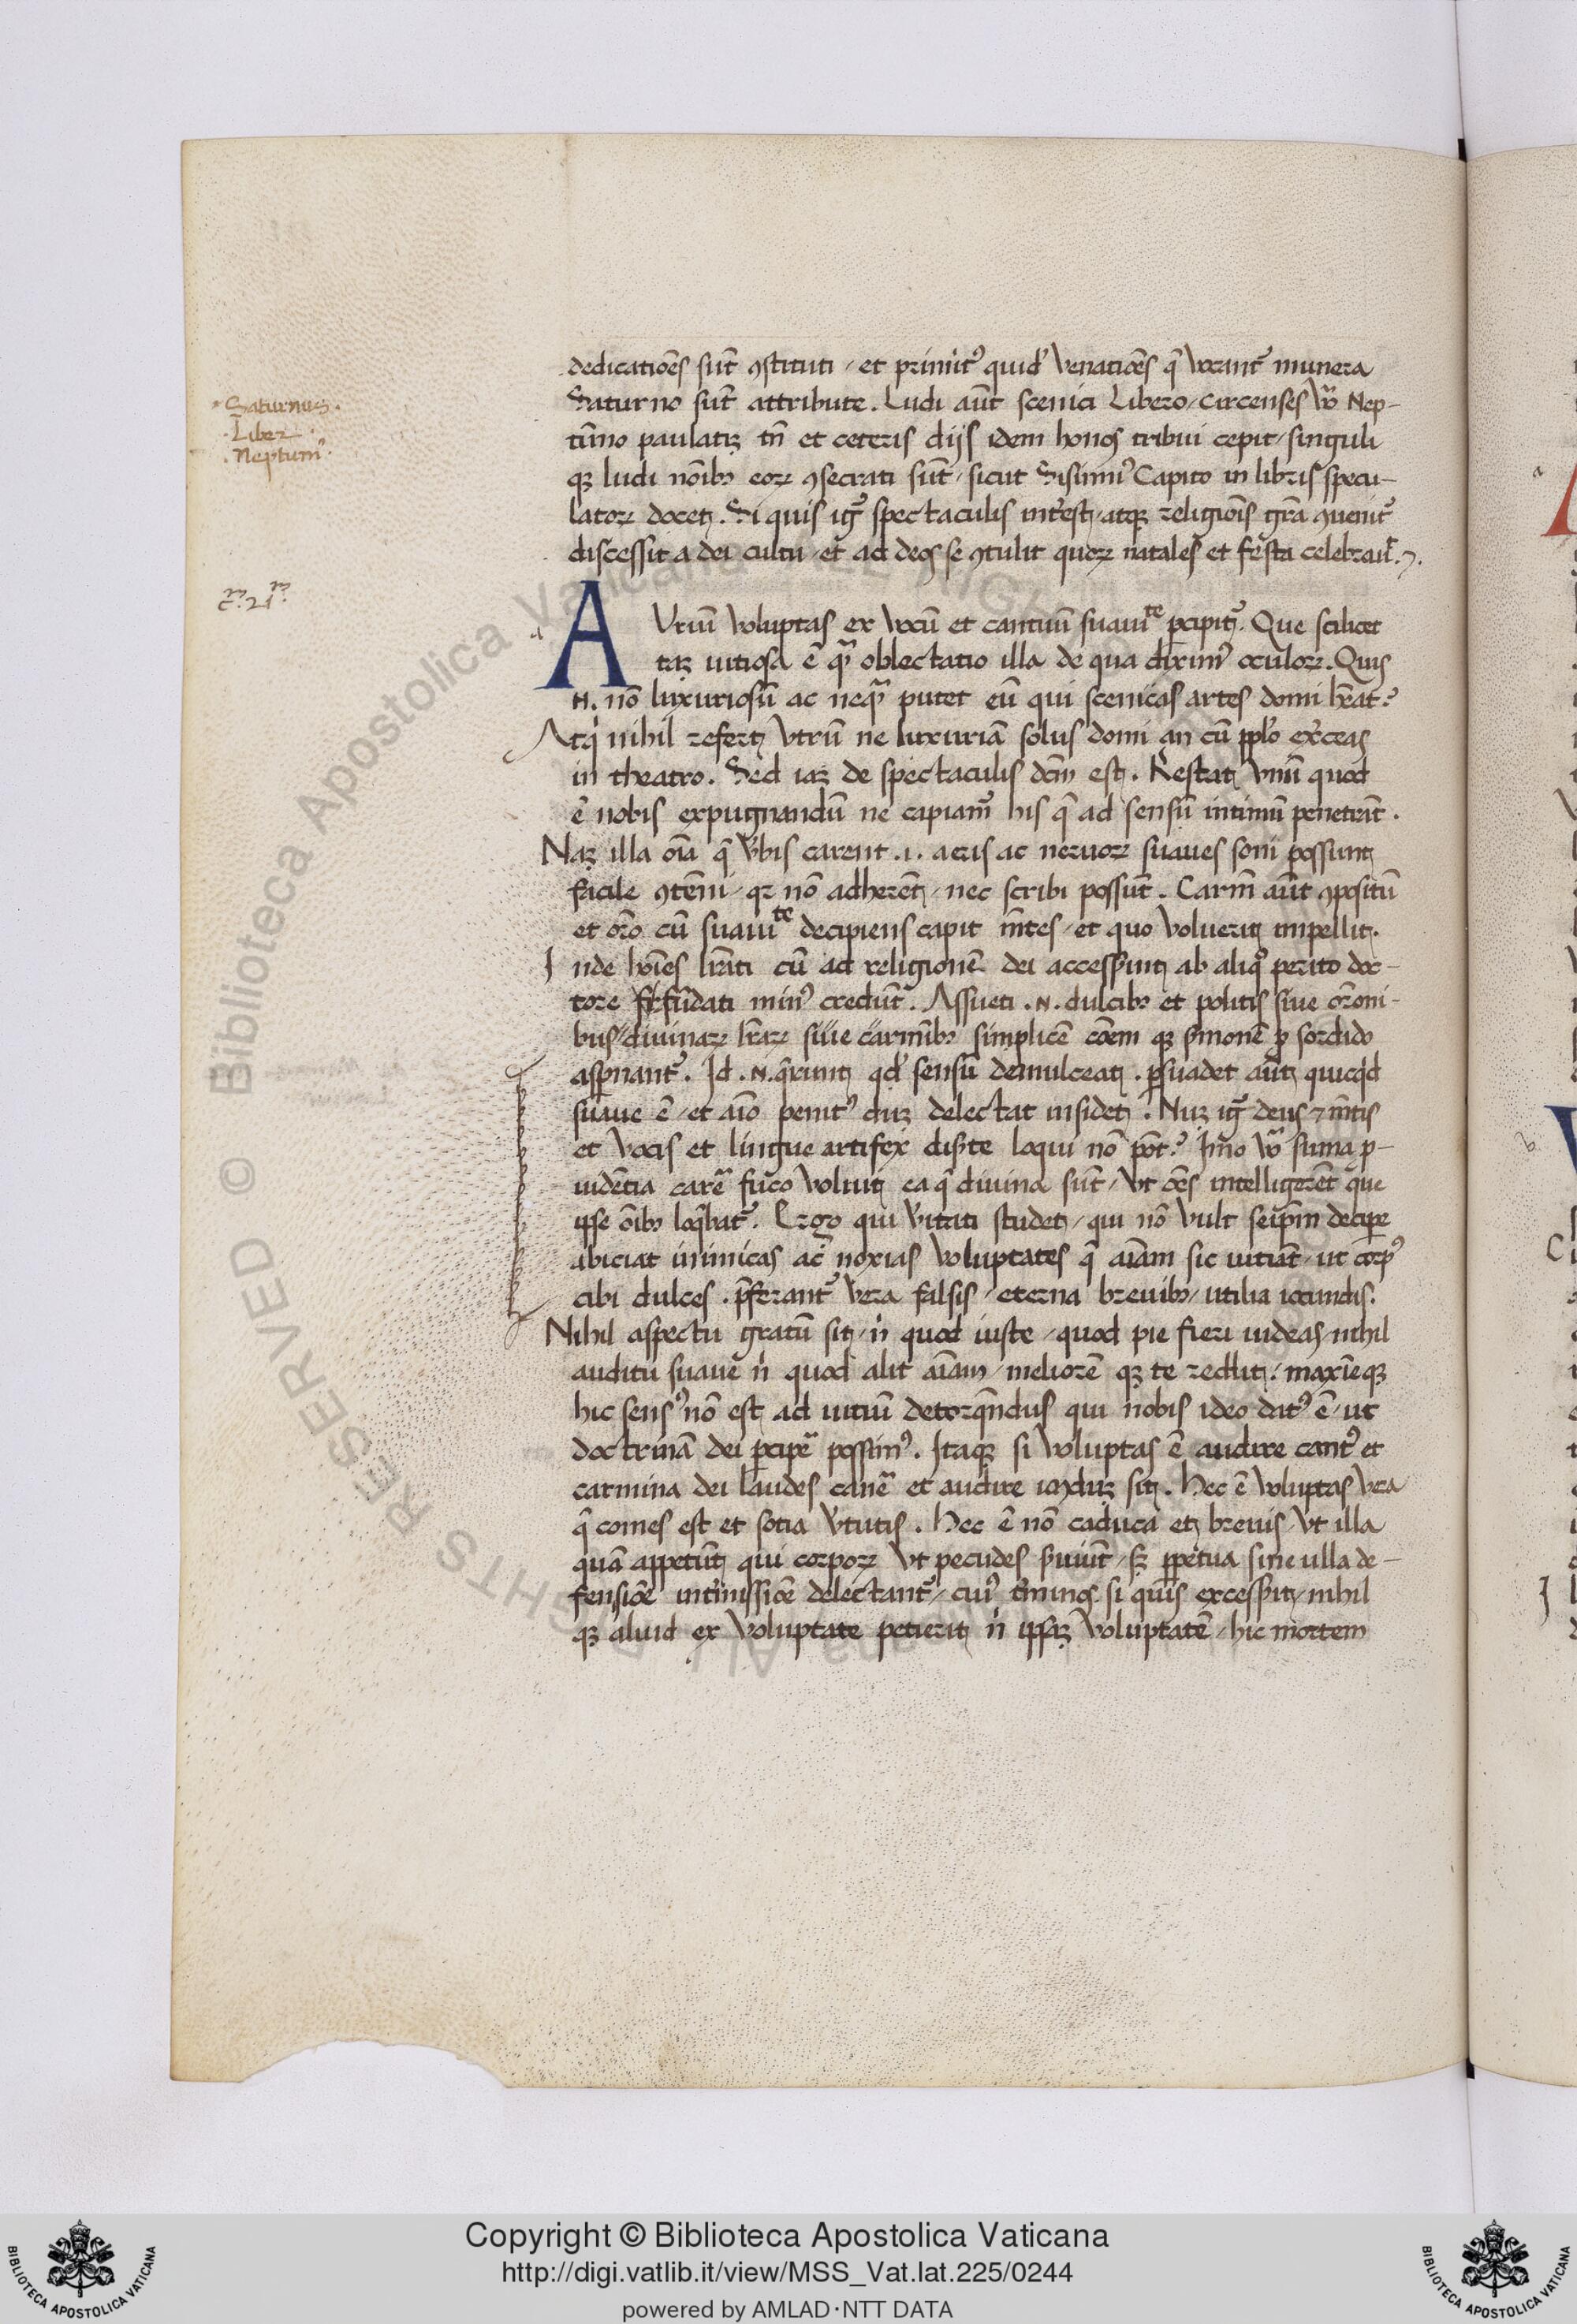 dedicatiōes sūt ꝯstituti / et primit᷒ quid' venatiōes q̄ vocant᷑ munera
Saturno sūt attribute. Ludi aūt scenici Libero / circenses v̊o Nep-
tūno paulatiꝫ tn̄ et ceteris dijs idem honos tribui cepit / singuli
qꝫ ludi noīb᷒ eoꝝ ꝯsecrati sūt / sicut Sisinni᷒ Capito in libris specu-
latoꝝ docet. Si quis igr̄ spectaculis int'est atqꝫ religiōis gr̄a ꝯuenit᷑
discessit a dei cultu / et ad deos se ꝯtulit quoꝝ natales et festa celebrauit.
Saturnus.
Liber
Neptun᷒
c.21
A
Vriū voluptas ex vocū et cantuū suauite p̱cipit᷑. Que scilicet
taꝫ uitiosa ē qᷓ oblectatio illa de qua dixim᷒ oculoꝝ. Quis
.N. nō luxuriosū ac neqᷓ putet eū qui scenicas artes domi hēat?
Atqͥ nihil refert vtrū ne luxuriā solus domi an cū pplo exerceas
in theatro. Sed iaꝫ de spectaculis dcm̄ est. Restat vnū quod
ē nobis expugnandū ne capiam᷑ his q̄ ad sensū intimū penetrāt.
Naꝫ illa oīa q̄ v̓bis carent .i. aeris ac neruoꝝ suaues soni possunt
facile ꝯtēni / qꝛ nō adherēt / nec scribi possūt. Carm̄ aūt ꝯpositū
et or̄o cū suauite decipiens capit mētes / et quo voluerit impellit.
Inde hoīes lr̄ati cū ad religionē dei accesserint ab aliqͦ perito doc-
tore fūdati min᷒ credūt. Assueti .N. dulcib᷒ et politis siue or̄oni-
bus diuinaꝝ lr̄aꝝ siue carminib᷒ simplicē cōem qꝫ s̓monē ꝓ sordido
asp̱nant᷑. Id .N. q̄runt qd̓ sensū demulceat. p̱suadet aūt quicqͥd
suaue ē / et aīo penit᷒ duꝫ delectat insidet. Nuꝫ igr̄ deus ⁊ mētis
et vocis et lingue artifex dis̓te loqui nō pōt? Imo v̊o suma ꝓ-
uidētia carē fuco voluit ea q̄ diuina sūt / vt oēs intelligerēt que
ipse oīb᷒ loq̄bat᷑. Ergo qui v̓itati studet / qui nō vult seip̄m decipe
abiciat inimicas ac noxias voluptates q̄ aīam sic uitiāt / ut corp᷒
cibi dulces. p̄ferant᷑ vera falsis / eterna breuib᷒ / utilia iocundis.
Nihil aspectu gratū sit / nͥ quod iuste / quod pie fieri uideas / nihil
auditu suaue nͥ quod alit aīam / meliorē qꝫ te reddit. maxīeqꝫ
hic sens᷒ nō est ad uitiū detorq̄ndus qui nobis ideo dat᷒ ē / ut
doctrinā dei p̱cipē possim᷒. Itaqꝫ si voluptas ē audire cant᷒ et
carmina dei laudes canē et audire iocūduꝫ sit. Hec ē voluptas vera
q̄ comes est et sotia v̓tutis. Hec ē nō caduca et breuis vt illa
quā appetūt qui corpoꝝ vt pecudes s̓uiūt / sꝫ p̱petua sine ulla de-
fensiōe int'missiōe delectant᷑ / cui᷒ t'minos si quis excesserit / nihil
qꝫ aliud ex voluptate petierit nͥ ipsaꝫ voluptatē / hic mortem
Copyright © Biblioteca Apostolica Vaticana
http://digi.vatlib.it/view/MSS_Vat.lat.225/0244
powered by AMLAD·NTT DATA
BIBLIOTECA APOSTOLICA VATICANA
BIBLIOTECA APOSTOLICA VATICANA